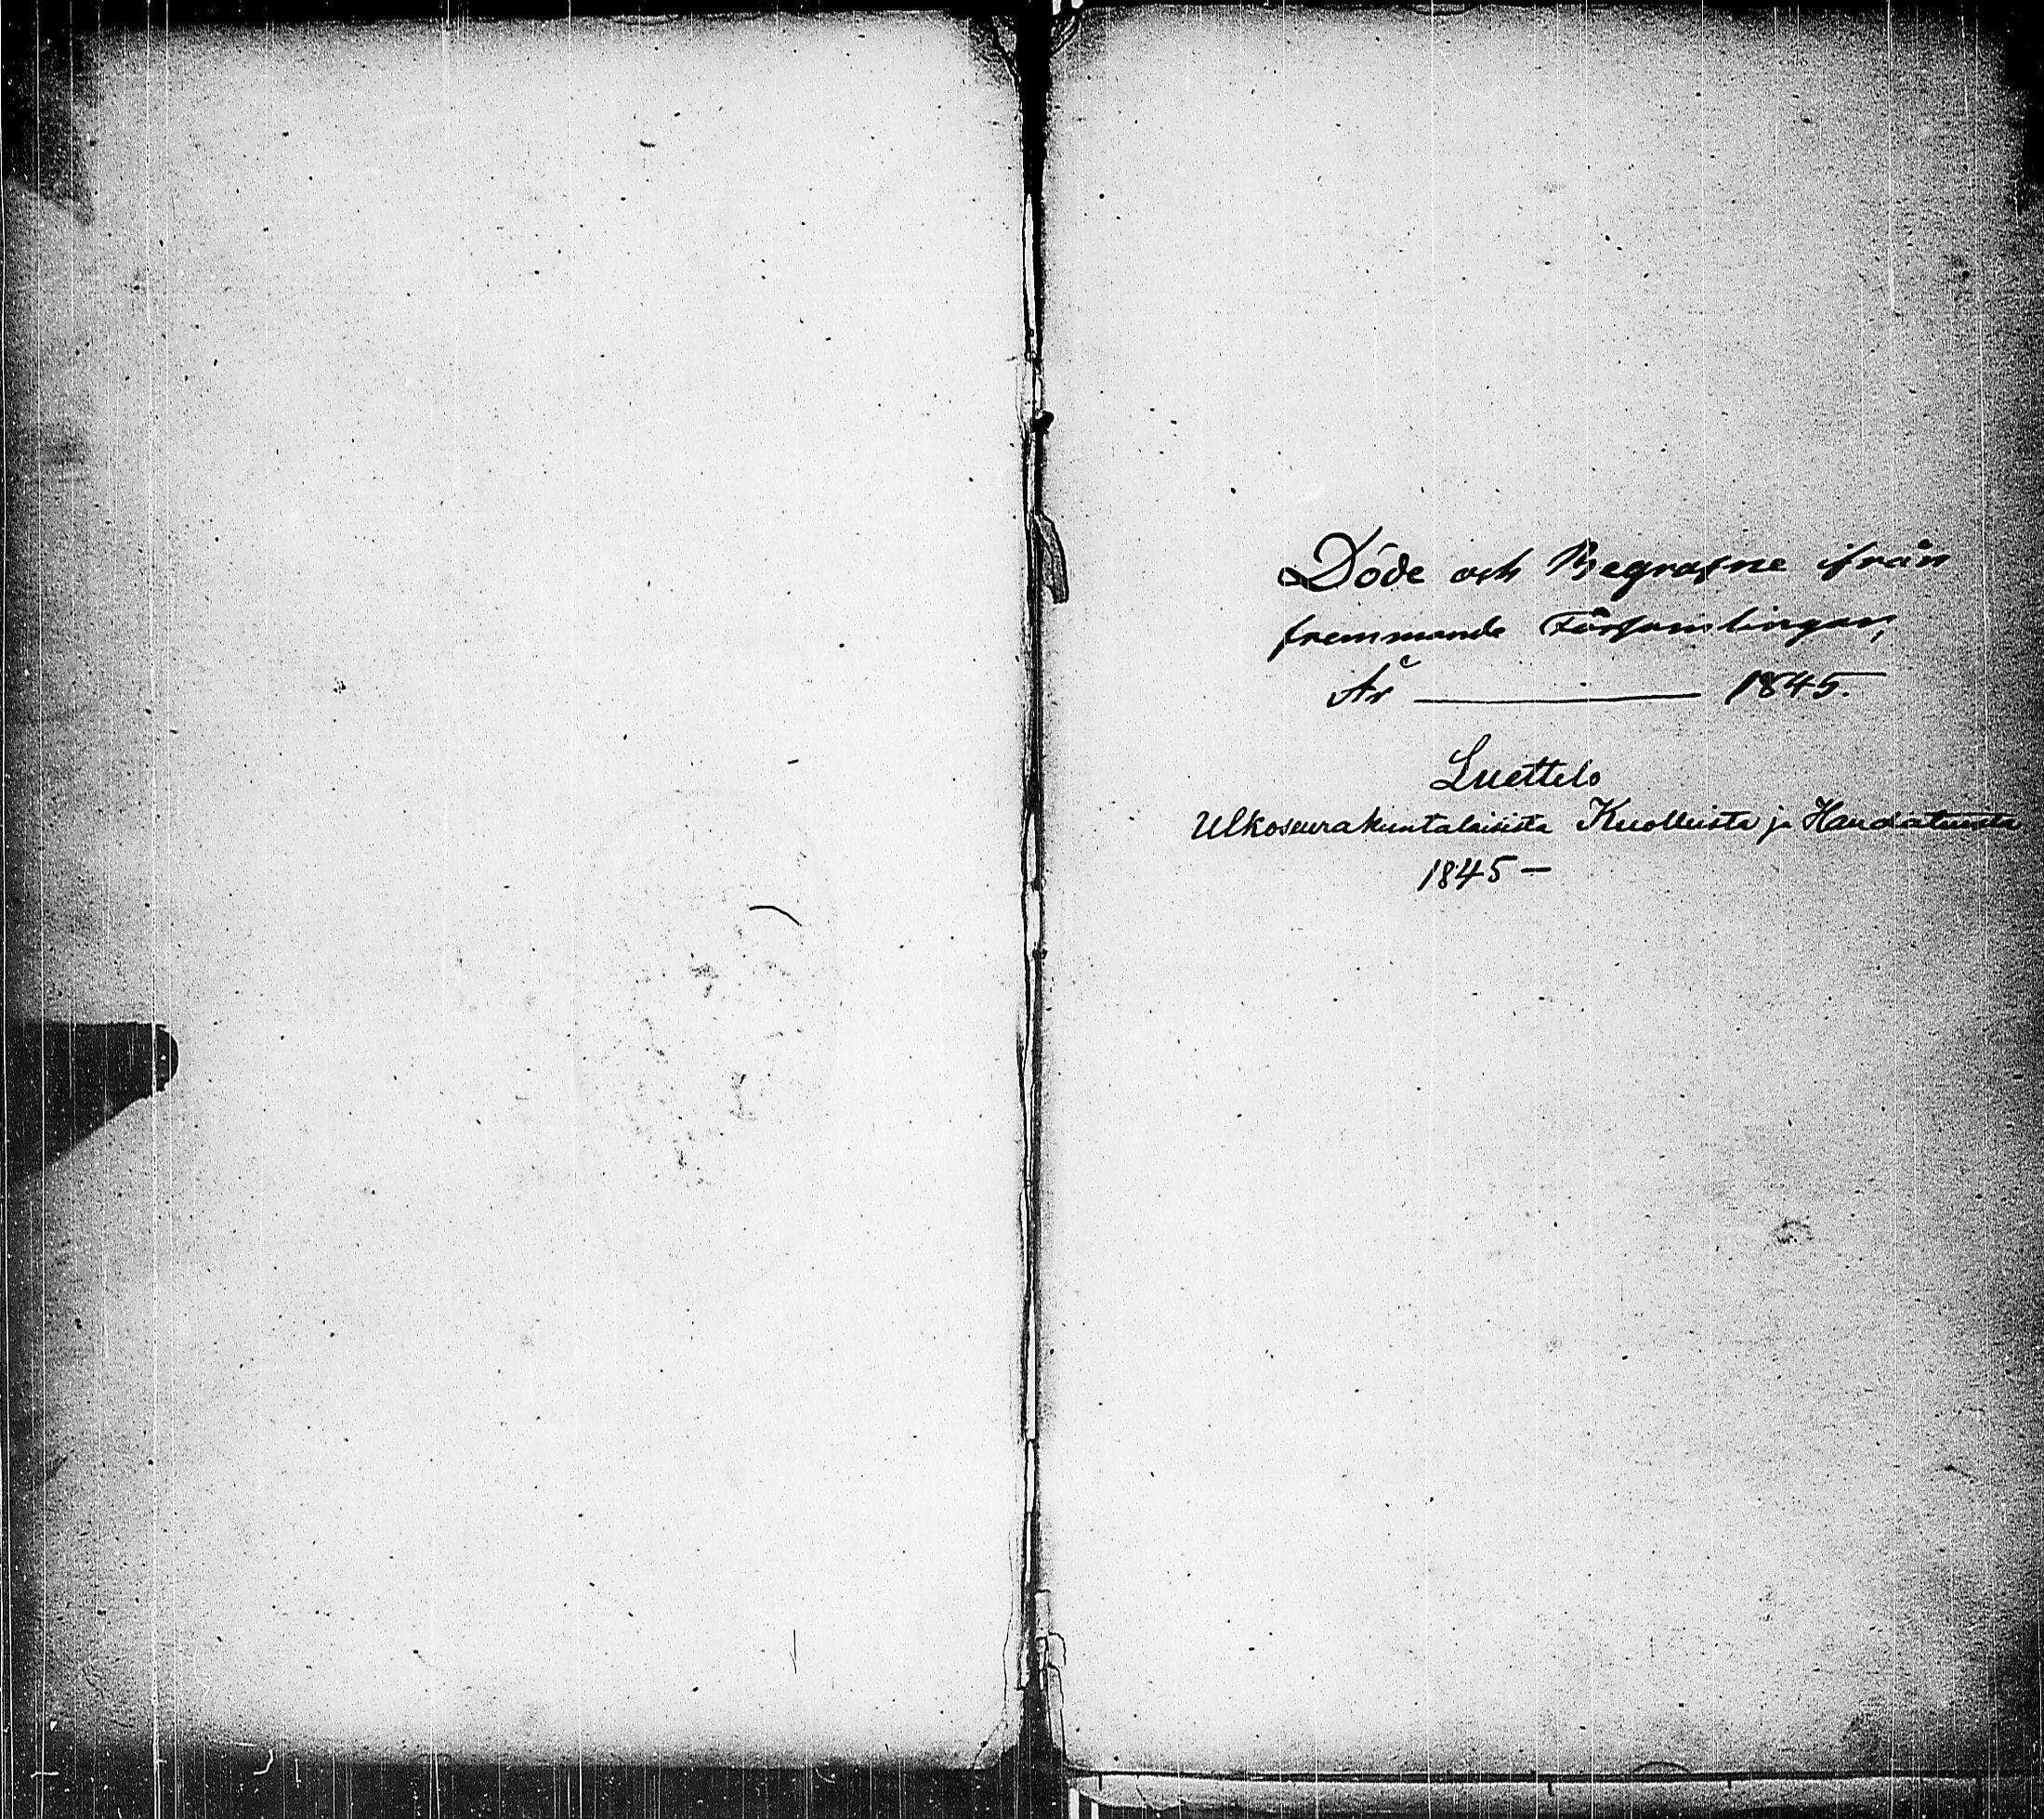 Döde och Begrafne ifrån
fremmande Församlingar,
År ——— 1845.
Luettelo
Ulkoseurakuntalaisista Kuolleista ja Haudatuista
1845 —